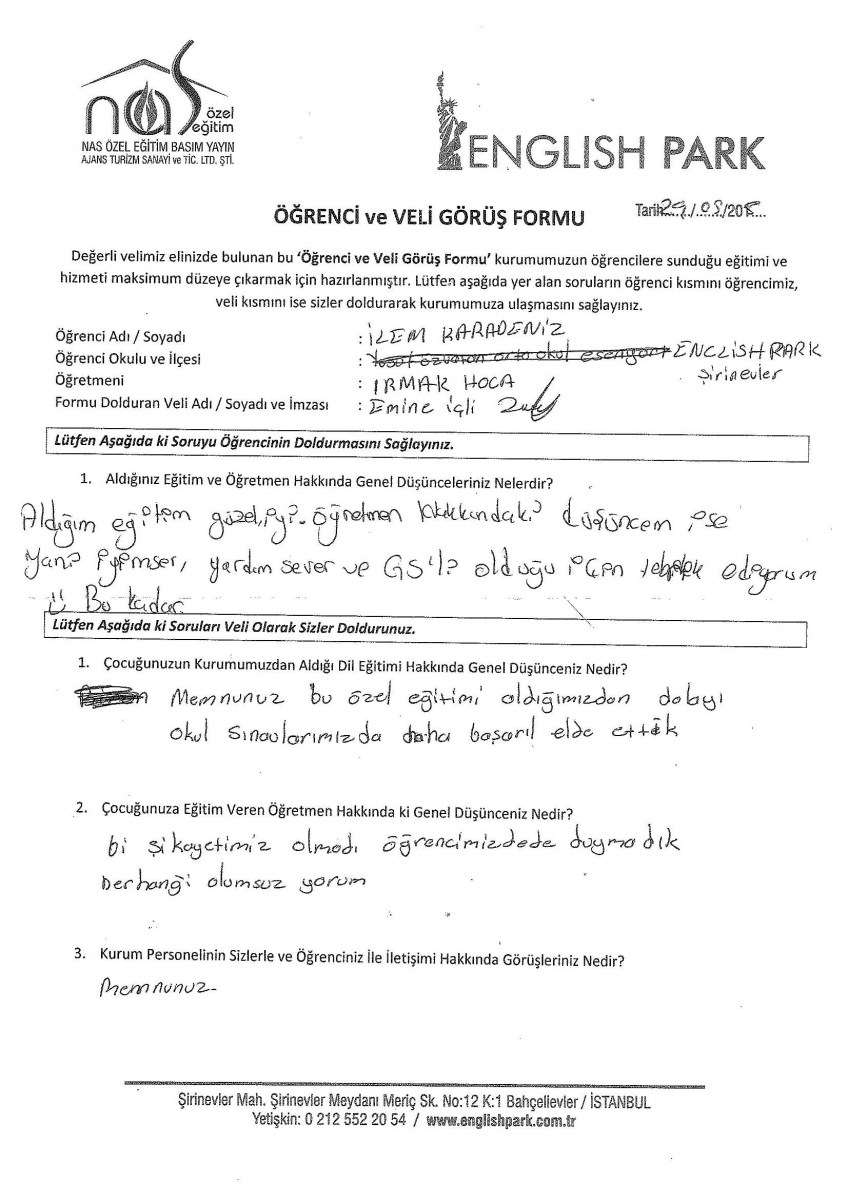 nas özel eğitim
NAS ÖZEL EĞİTİM BASIM YAYIN
AJANS TURİZM SANAYİ ve TİC. LTD. ŞTİ.
ENGLISH PARK
ÖĞRENCİ ve VELİ GÖRÜŞ FORMU
Tarih 29/05/2015
Değerli velimiz elinizde bulunan bu 'Öğrenci ve Veli Görüş Formu' kurumumuzun öğrencilere sunduğu eğitimi ve
hizmeti maksimum düzeye çıkarmak için hazırlanmıştır. Lütfen aşağıda yer alan soruların öğrenci kısmını öğrencimiz,
veli kısmını ise sizler doldurarak kurumumuza ulaşmasını sağlayınız.
Öğrenci Adı / Soyadı : İLEM KARADENİZ
Öğrenci Okulu ve İlçesi : orta okul esenyurt ENGLISH PARK
şirinevler
Öğretmeni : IRMAK HOCA
Formu Dolduran Veli Adı / Soyadı ve İmzası : Emine içli
Lütfen Aşağıda ki Soruyu Öğrencinin Doldurmasını Sağlayınız.
1. Aldığınız Eğitim ve Öğretmen Hakkında Genel Düşünceleriniz Nelerdir?
Aldığım eğitim güzel, iyi. Öğretmen hakkındaki düşüncem ise
Yani iyimser, yardım sever ve GS'li olduğu için tebrik ediyorum
Bu kadar
Lütfen Aşağıda ki Soruları Veli Olarak Sizler Doldurunuz.
1. Çocuğunuzun Kurumumuzdan Aldığı Dil Eğitimi Hakkında Genel Düşünceniz Nedir?
Memnunuz bu özel eğitimi aldığımızdan dolayı
okul sınavlarımızda daha başarıl elde ettik
2. Çocuğunuza Eğitim Veren Öğretmen Hakkında ki Genel Düşünceniz Nedir?
bi şikayetimiz olmadı öğrencimizdede duymadık
herhangi olumsuz yorum
3. Kurum Personelinin Sizlerle ve Öğrenciniz İle İletişimi Hakkında Görüşleriniz Nedir?
Memnunuz.
Şirinevler Mah. Şirinevler Meydanı Meriç Sk. No:12 K:1 Bahçelievler / İSTANBUL
Yetişkin: 0 212 552 20 54 / www.englishpark.com.tr